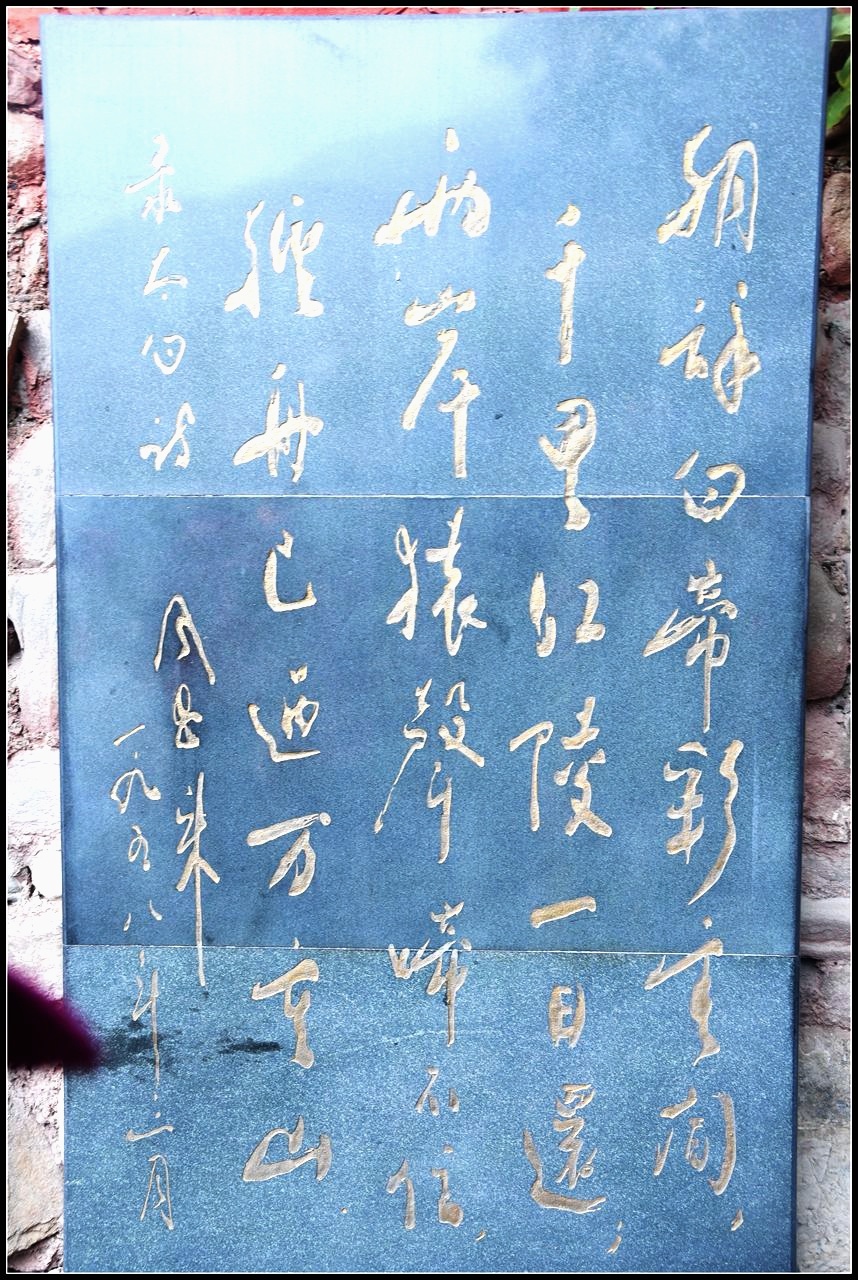 朝辞白帝彩云间，
千里江陵一日還；
兩岸猿聲啼不住，
輕舟已過万重山.
录太白诗
周恩来
一九五八年三月